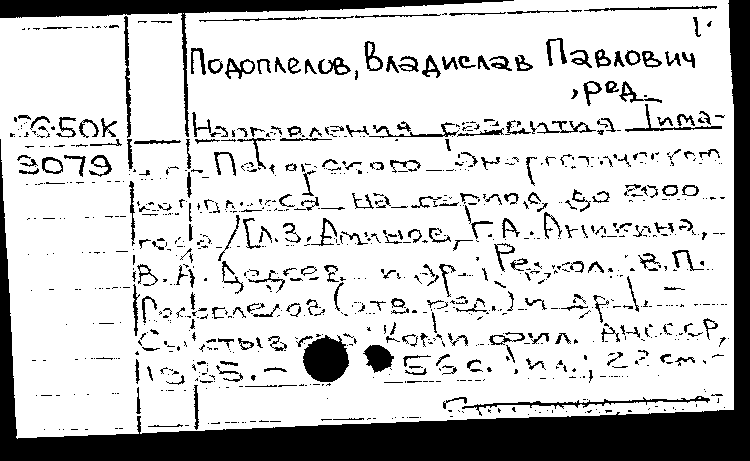 1.
Подоплелов, Владислав Павлович
, ред.
36.50К Направления развития Тима-
9079 но-Печорского энергетического
комплекса на период до 2000
года /[Л.З. Аминов, Г.А. Аникина,
В.А. Дедеев и др.; Редкол.: В.П.
Подоплелов (отв. ред.) и др.]. –
Сыктывкар: Коми фил. АН СССР,
1985. – 56 с.: ил.; 22 см. –